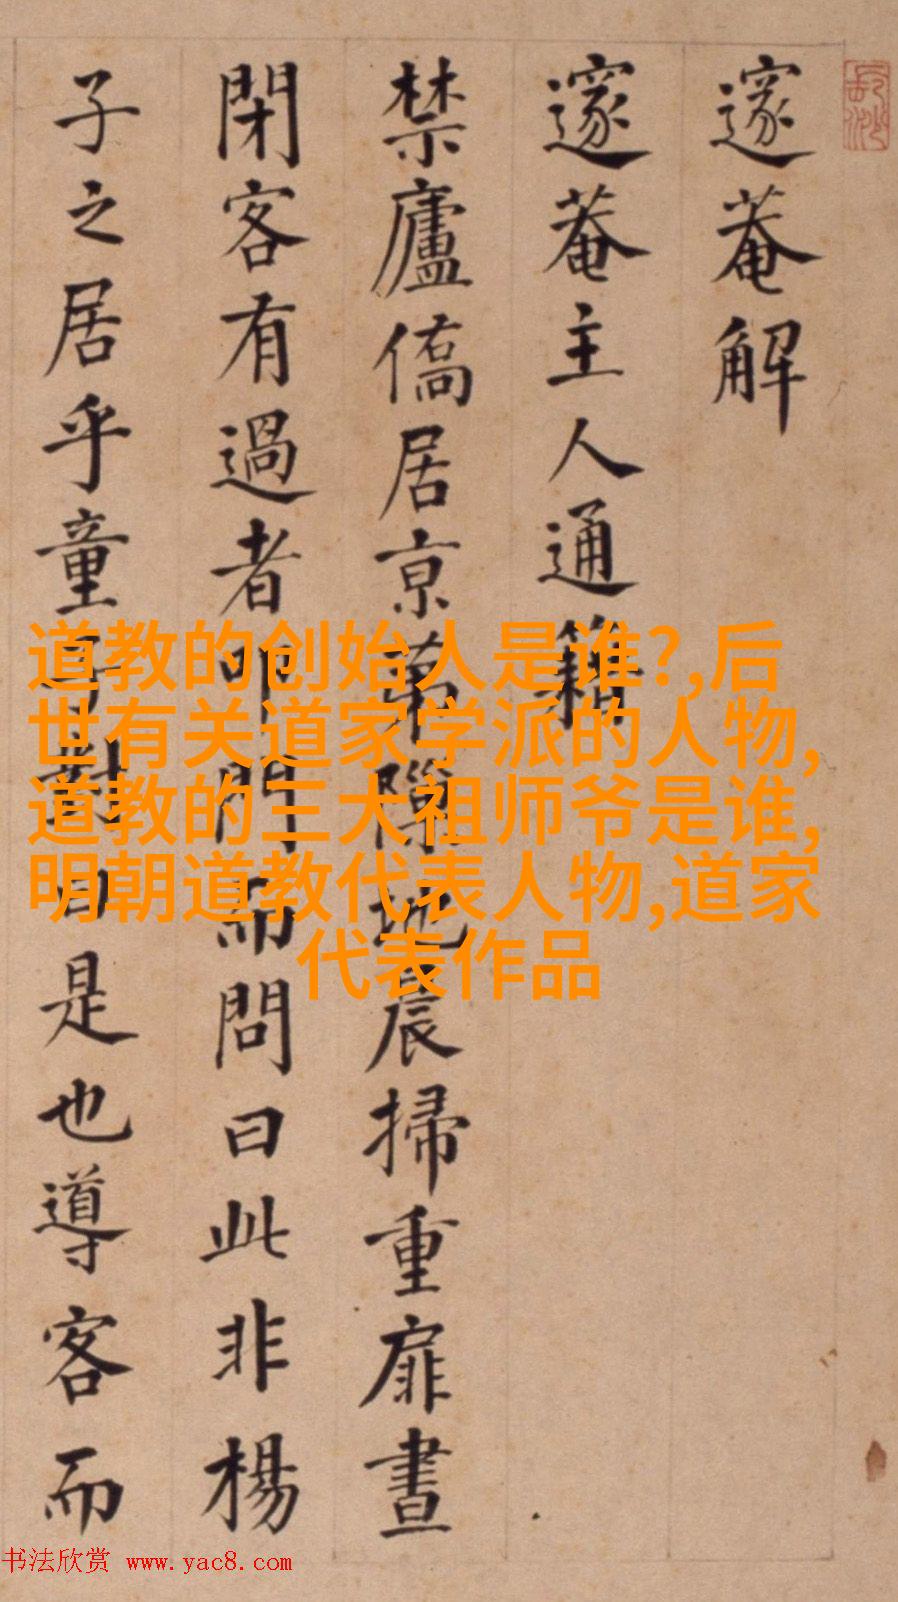 邃菴解
邃菴主人通籍
禁廬僑居京第隙地晨掃重扉晝
閉客有過者叩門而問曰此非楊
子之居乎童對曰是也導客而
道教的创始人是谁?,后
世有关道家学派的人物,
道教的三大祖师爷是谁,
明朝道教代表人物,道家
代表作品
书法欣赏 www.yac8.com